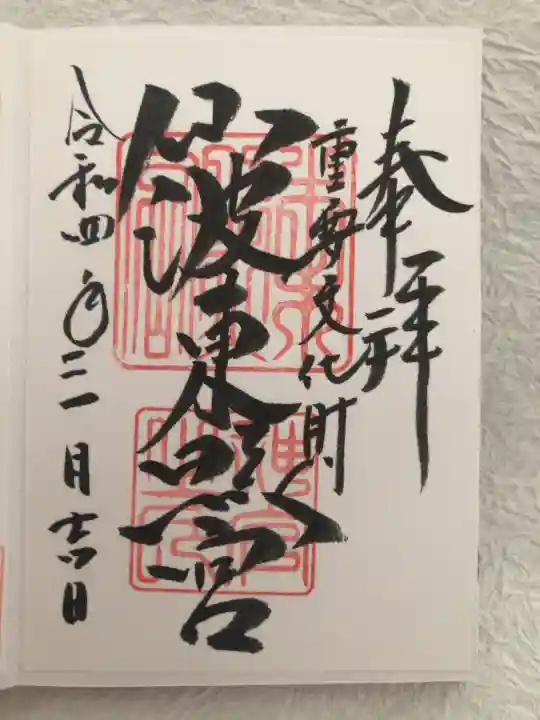 奉拝
重要文化財
仙波東照宮
令和四年三月吉日